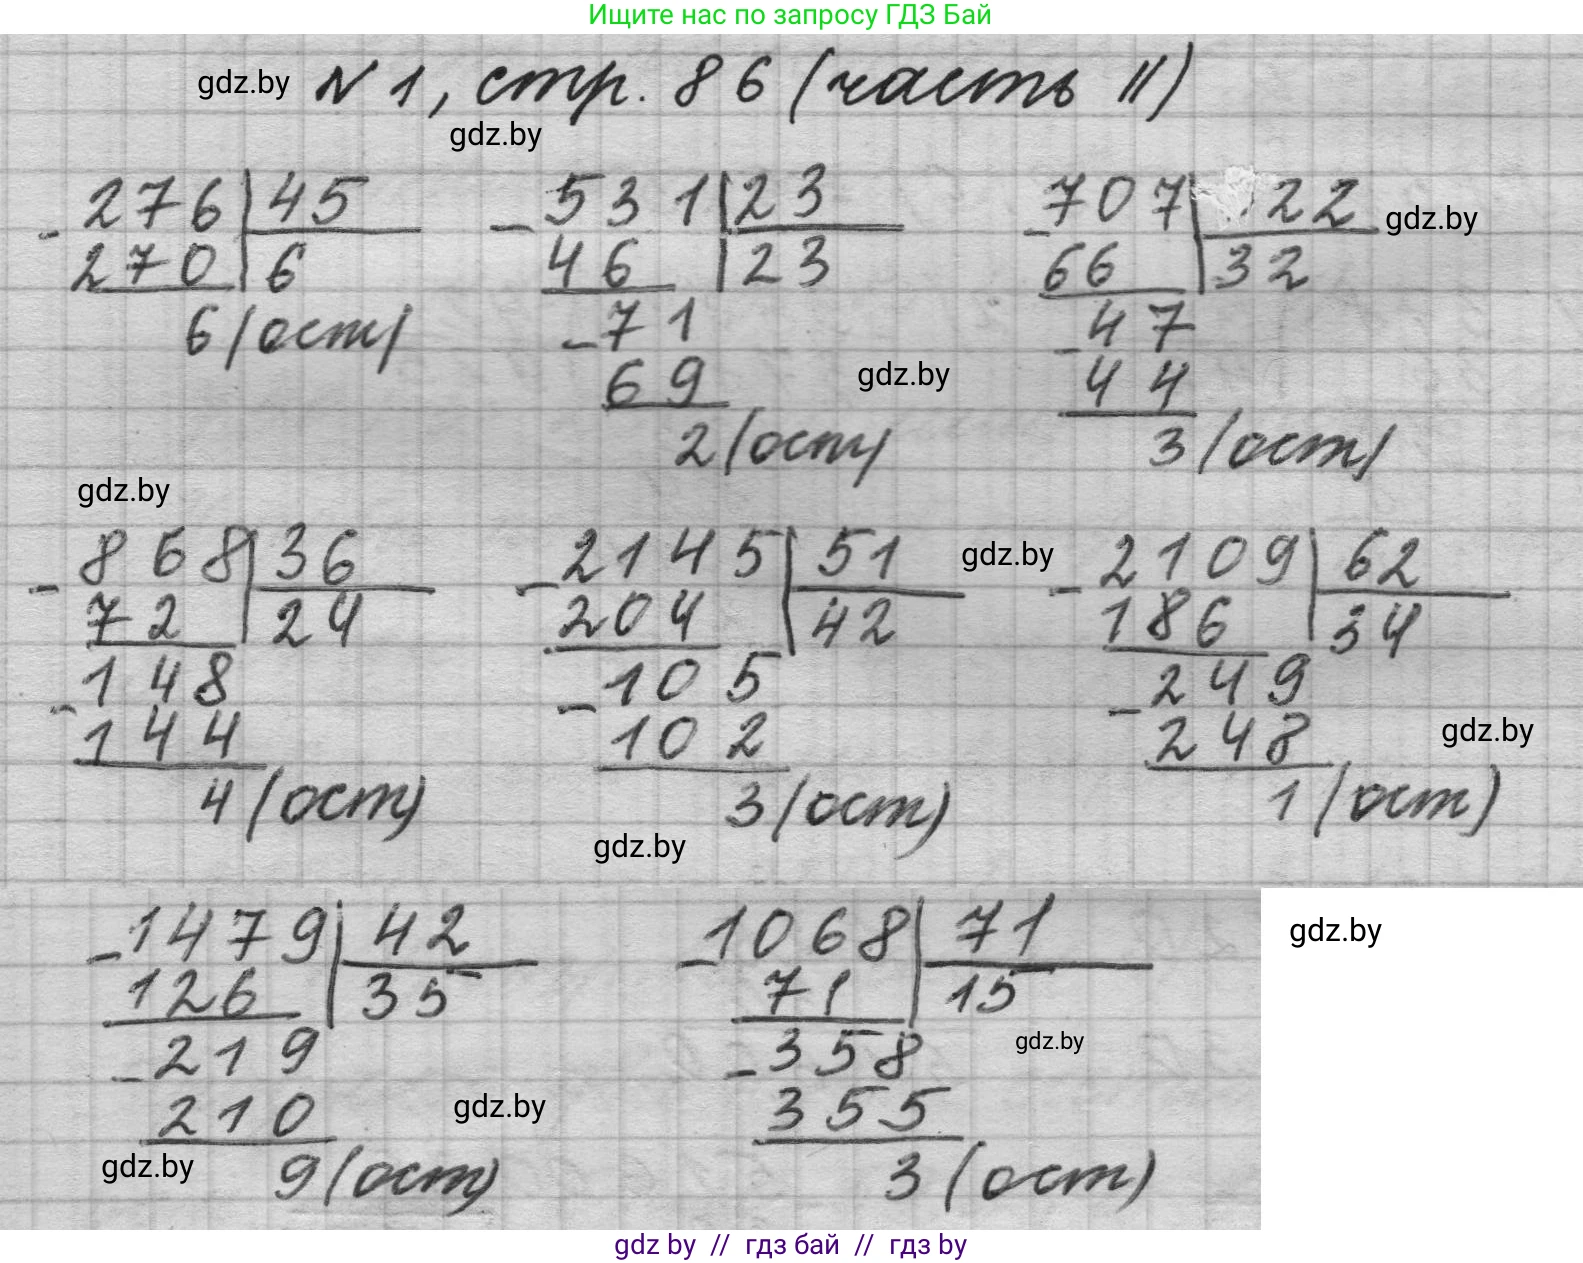 Ищите нас по запросу ГДЗ Бай
gdz.by № 1, стр. 86 (часть II)
gdz.by
276 45 531 23 707 22 gdz.by
270 6 46 23 66 32
6 (ост) 71 47
69 gdz.by 44
2 (ост) 3 (ост)
gdz.by
868 36 2145 51 gdz.by 2109 62
72 24 204 42 186 34
148 105 249
144 102 248 gdz.by
4 (ост) 3 (ост) 1 (ост)
gdz.by
1479 42 1068 71 gdz.by
126 35 71 15
219 358 gdz.by
210 gdz.by 355
gdz.by 9 (ост) 3 (ост)
gdz by // гдз бай // гдз by